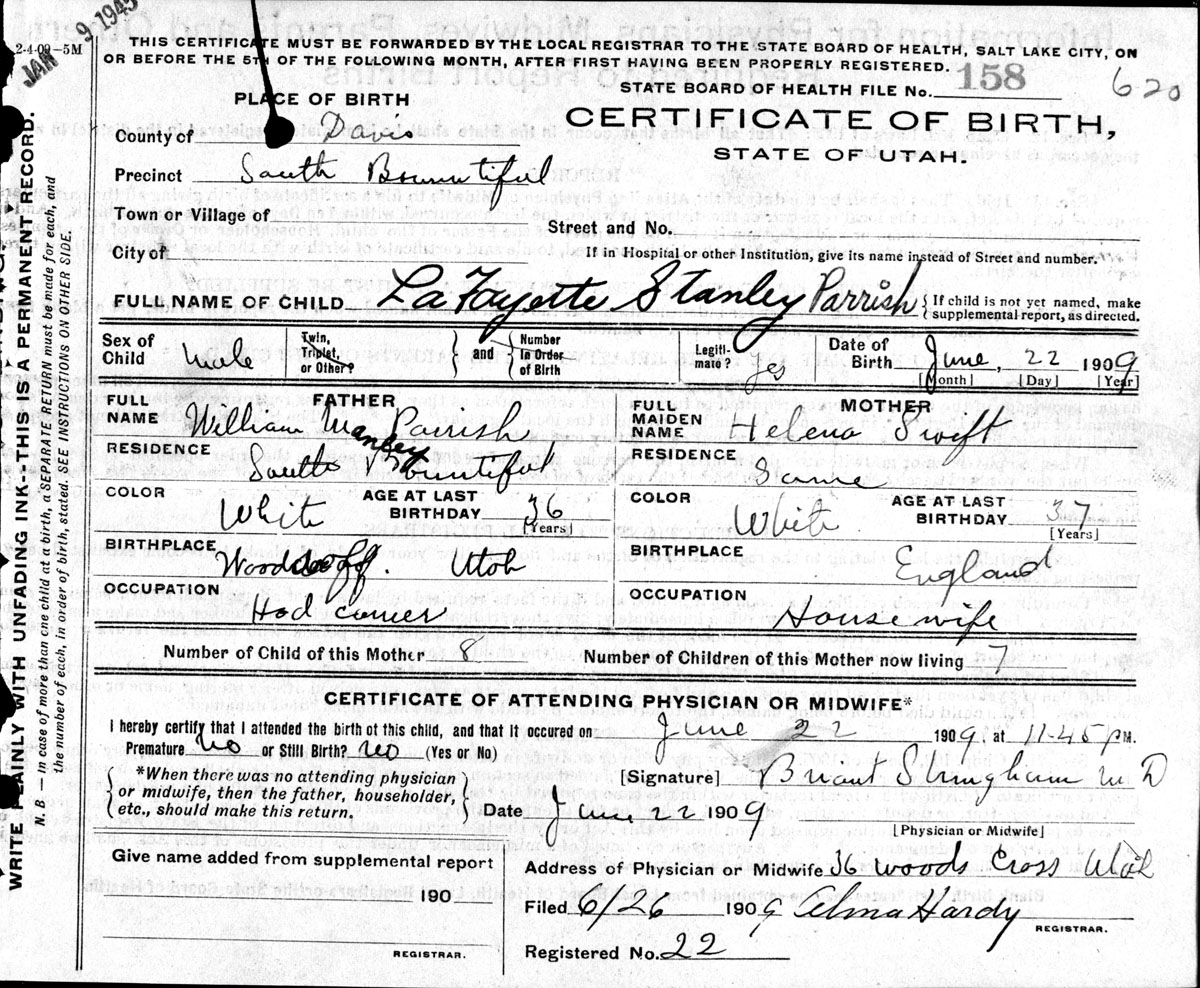 JAN 9 1945
2-4-09–5M
THIS CERTIFICATE MUST BE FORWARDED BY THE LOCAL REGISTRAR TO THE STATE BOARD OF HEALTH, SALT LAKE CITY, ON
OR BEFORE THE 5TH OF THE FOLLOWING MONTH, AFTER FIRST HAVING BEEN PROPERLY REGISTERED.
STATE BOARD OF HEALTH FILE No. 158
620
PLACE OF BIRTH
CERTIFICATE OF BIRTH,
STATE OF UTAH.
County of Davis
Precinct South Bountiful
Town or Village of
Street and No.
City of
If in Hospital or other Institution, give its name instead of Street and number.
FULL NAME OF CHILD LaFayette Stanley Parrish { If child is not yet named, make
supplemental report, as directed.
Sex of Child male
Twin, Triplet, or Other?
and
Number in Order of Birth
Legiti-mate? yes
Date of Birth June, 22 1909
[Month] [Day] [Year]
FATHER
FULL NAME William Manley Parrish
RESIDENCE South Bountiful
COLOR White
AGE AT LAST BIRTHDAY 36 [Years]
BIRTHPLACE Utah
OCCUPATION Hod
MOTHER
FULL MAIDEN NAME Helena Swift
RESIDENCE Same
COLOR White
AGE AT LAST BIRTHDAY 37 [Years]
BIRTHPLACE England
OCCUPATION Housewife
Number of Child of this Mother 8
Number of Children of this Mother now living 7
CERTIFICATE OF ATTENDING PHYSICIAN OR MIDWIFE*
I hereby certify that I attended the birth of this child, and that it occured on June 22 1909, at 11-45 PM.
Premature No or Still Birth? No (Yes or No)
*When there was no attending physician
or midwife, then the father, householder,
etc., should make this return.
[Signature] Briant Stringham MD
Date June 22 1909
[Physician or Midwife]
Give name added from supplemental report
190
REGISTRAR.
Address of Physician or Midwife 36 Woods Cross Utah
Filed 6/26 1909 Alma Hardy
REGISTRAR.
Registered No. 22
WRITE PLAINLY WITH UNFADING INK--THIS IS A PERMANENT RECORD.
N. B. — In case of more than one child at a birth, a SEPARATE RETURN must be made for each, and
the number of each, in order of birth, stated. SEE INSTRUCTIONS ON OTHER SIDE.